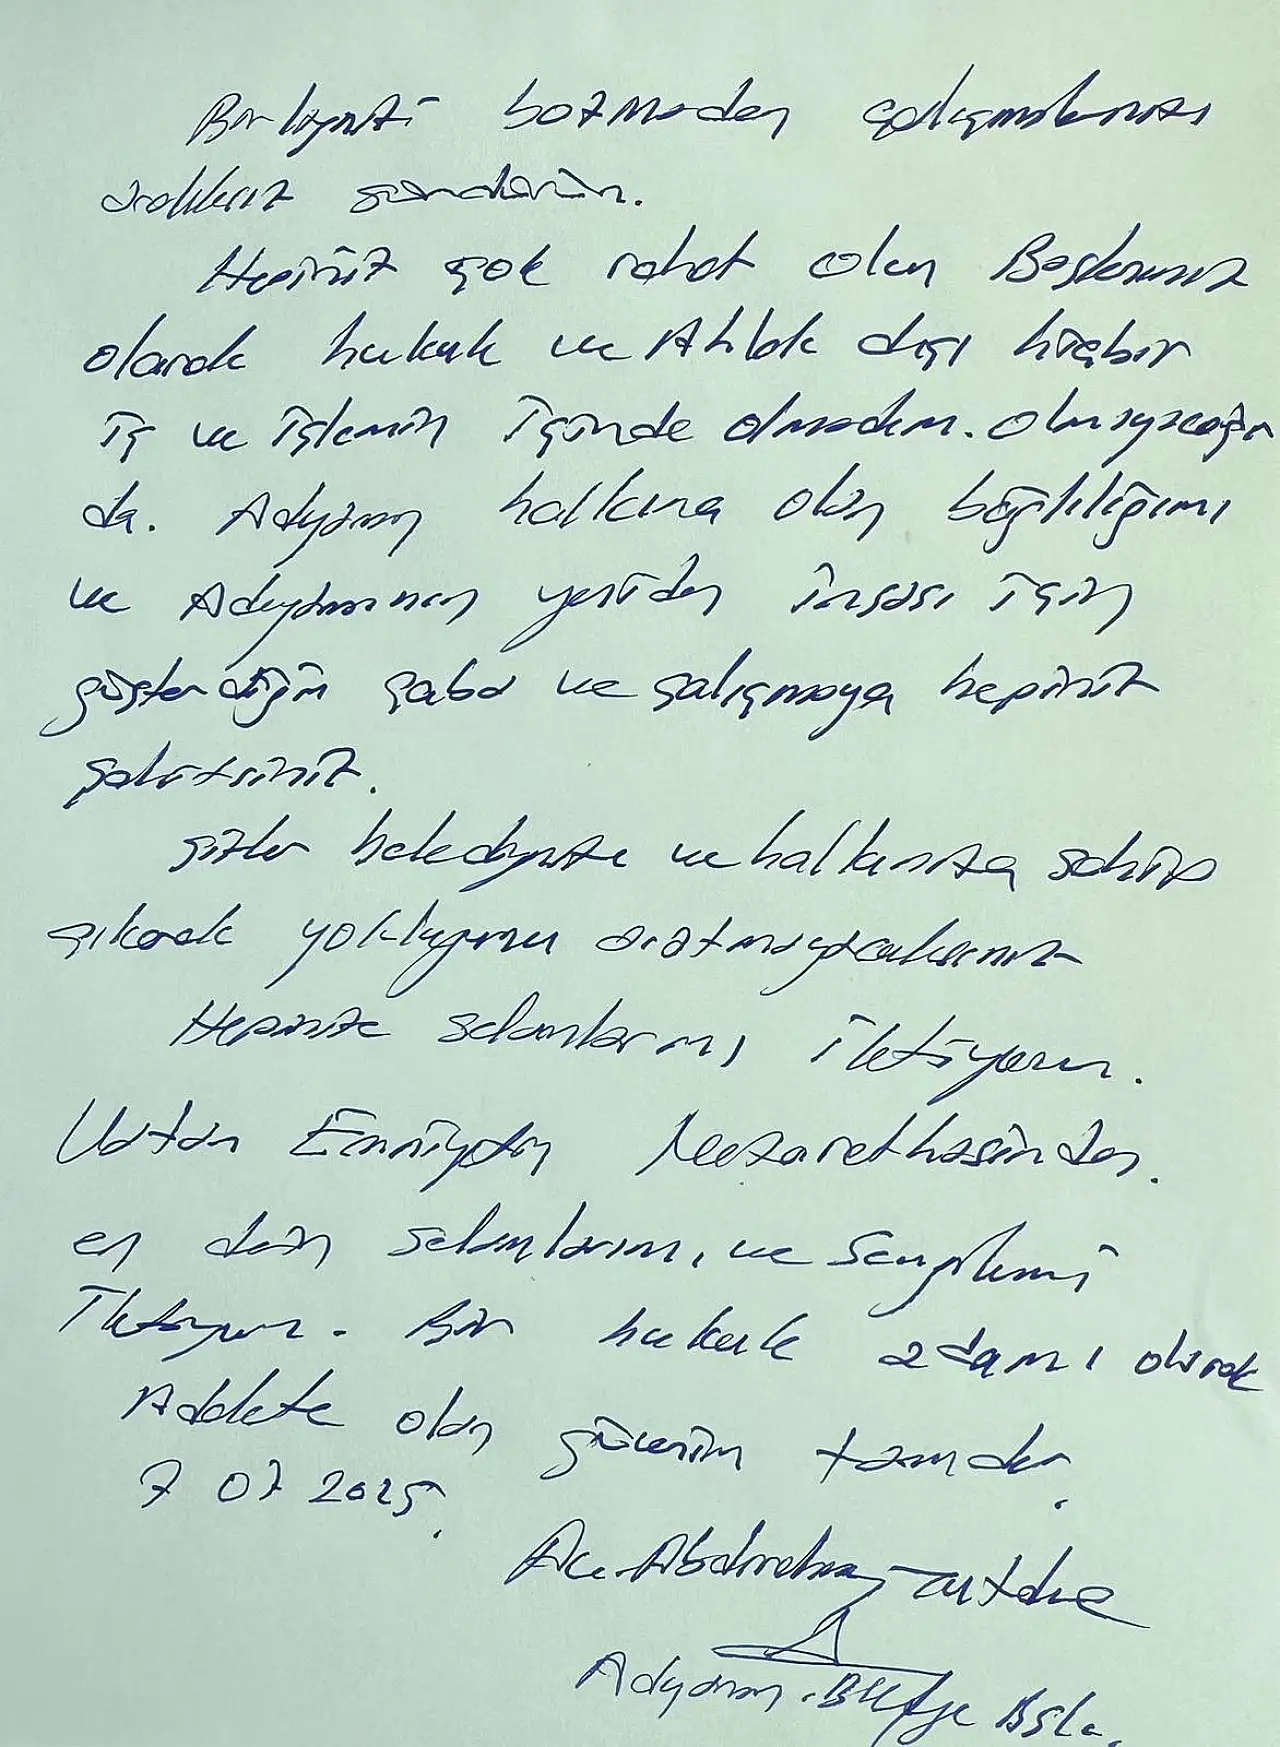 Birliğinizi bozmadan çalışmalarınızı
aralıksız sürdürün.
Hepiniz çok rahat olun Başkanınız
olarak hukuk ve Ahlak dışı hiçbir
iş ve işlemin içinde olmadım. Olmayacağım
da. Adıyaman halkına olan bağlılığımı
ve Adıyamanın yeniden inşası için
gösterdiğim çaba ve çalışmaya hepiniz
şahitsiniz.
Sizler belediyenize ve halkınıza sahip
çıkarak yokluğumu aratmayacaksınız
Hepinize selamlarımı iletiyorum.
Vatan Emniyetin Nezarethanesinden.
en derin selamlarımı, ve Sevgilerimi
İletiyorum. Bir hukuk adamı olarak
Adalete olan güvenim tamdır.
7 07 2025.
Av. Abdurrahman Tutdere
Adıyaman Bld Bşk.